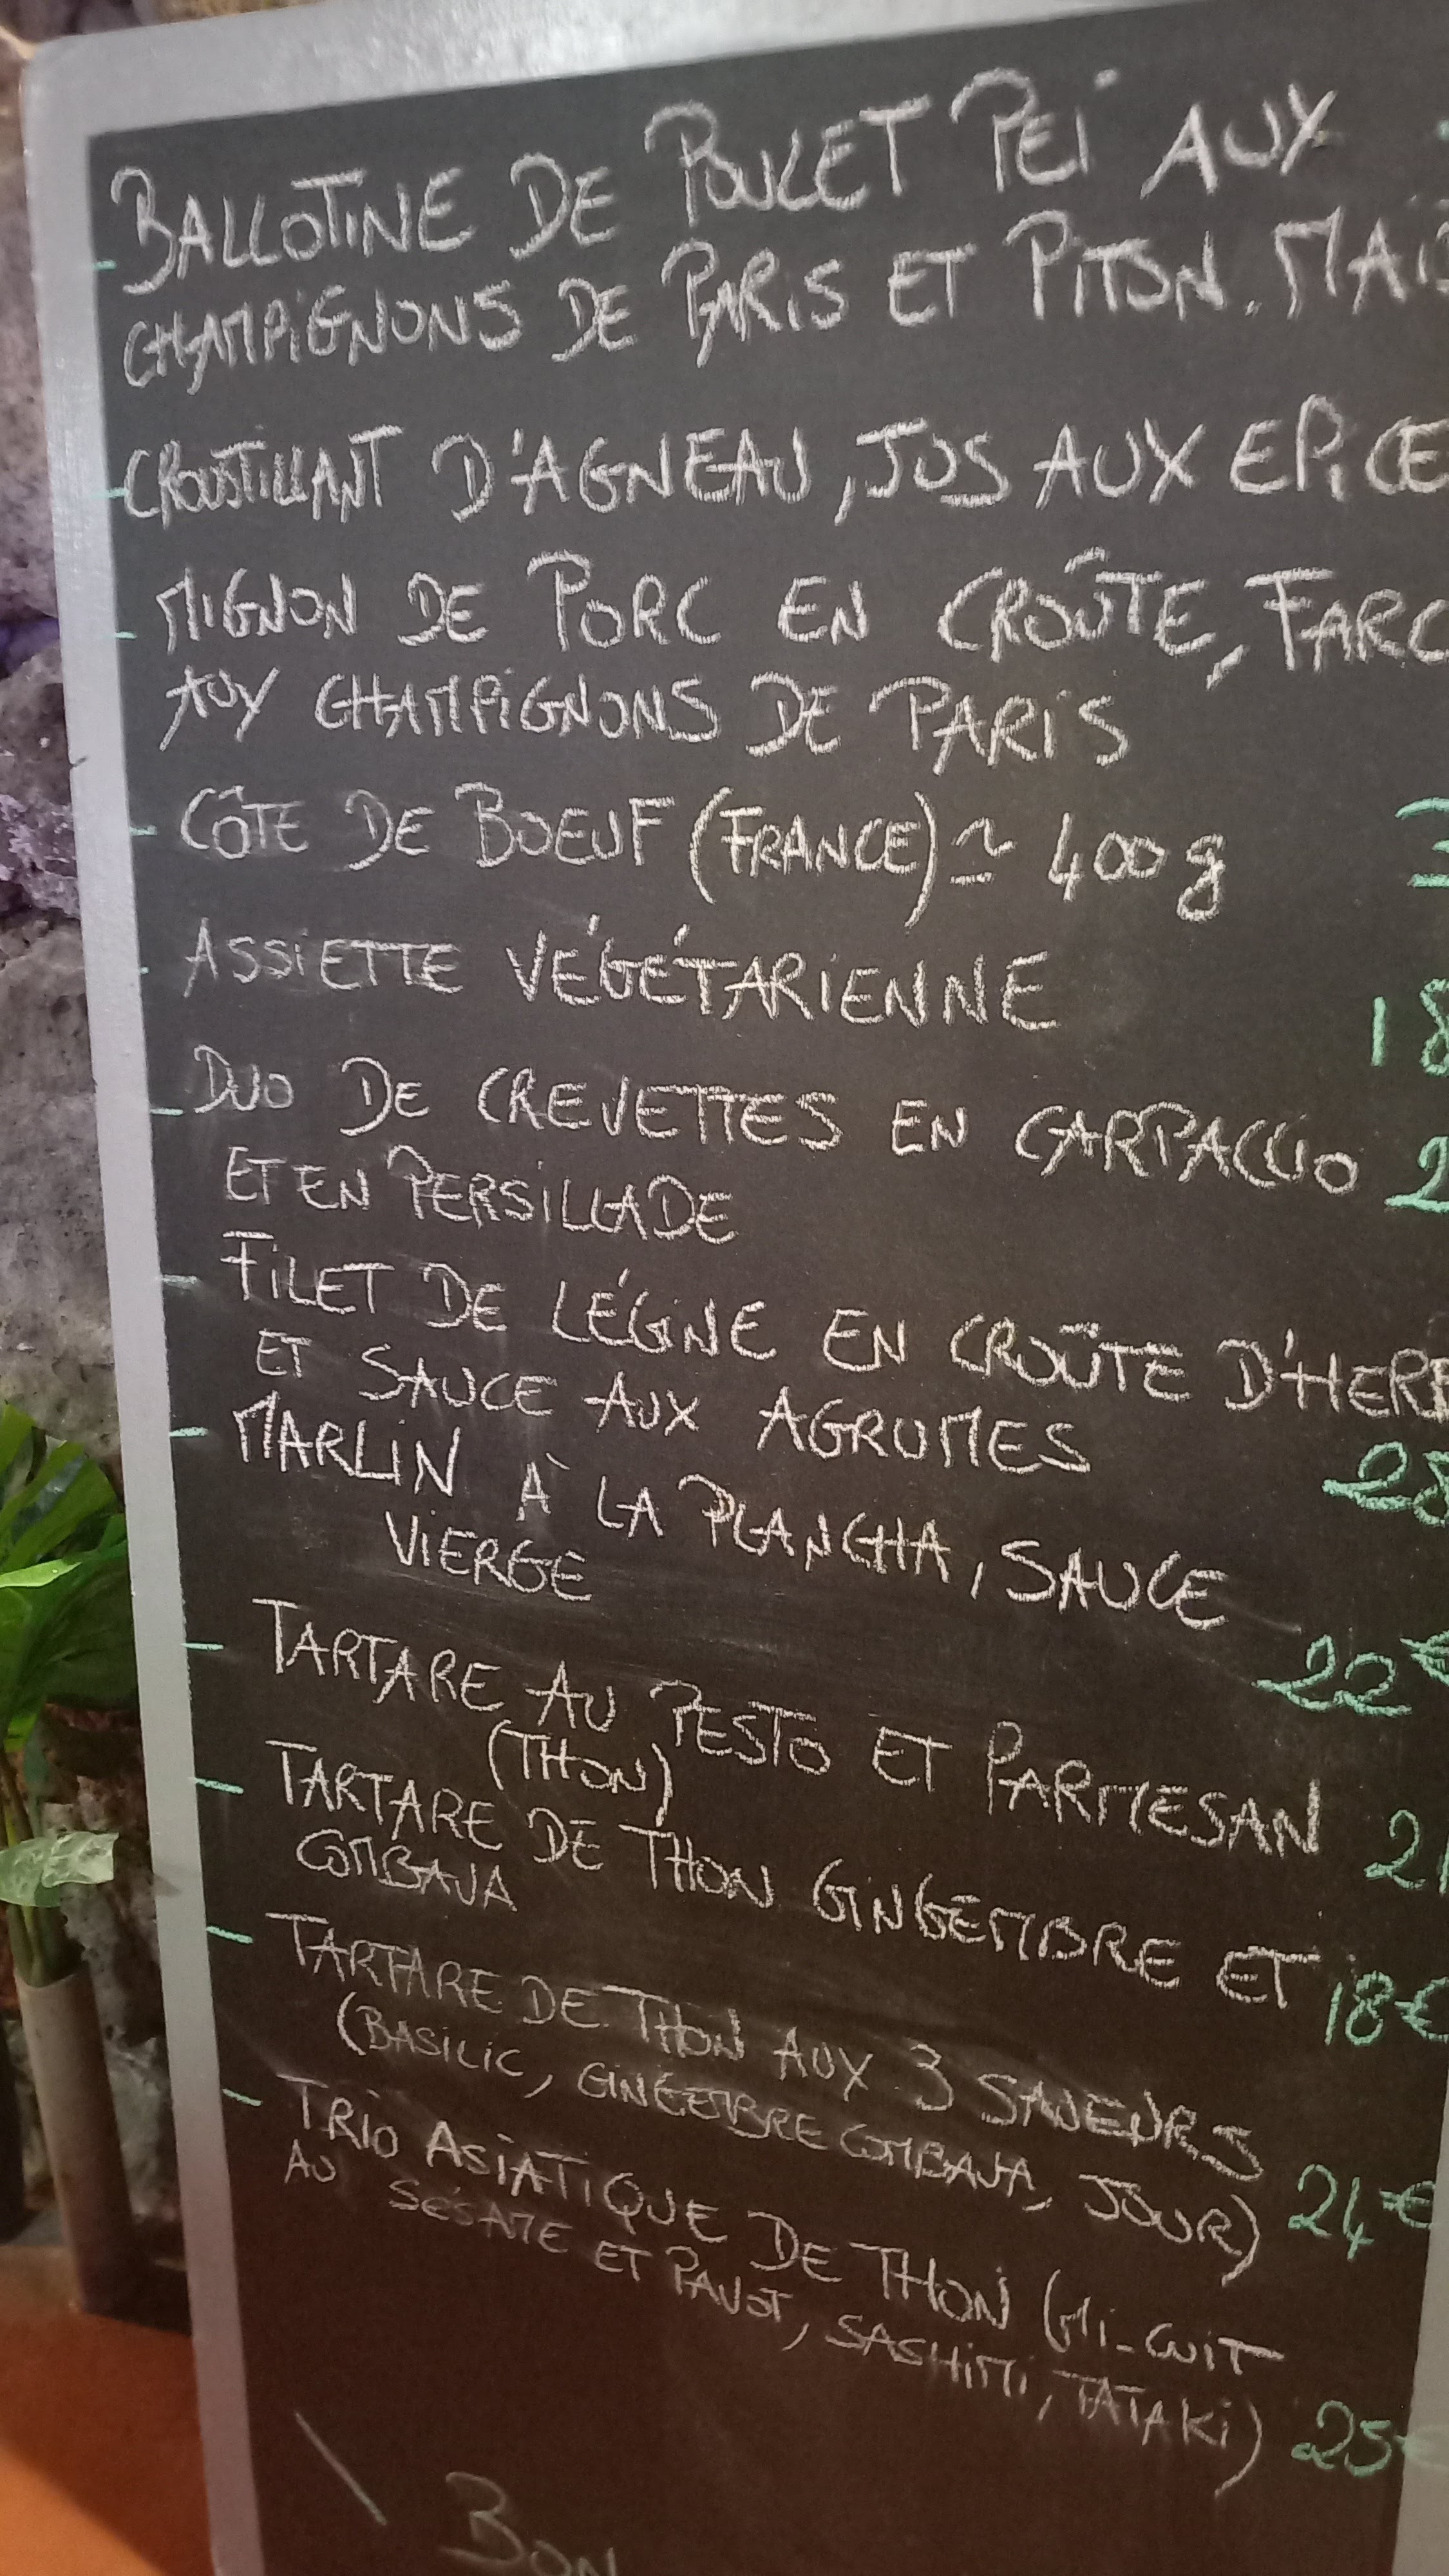 - BALLOTINE DE POULET PEÏ AUX
CHAMPIGNONS DE PARIS ET PITON. MAÏS
- CROUSTILLANT D'AGNEAU, JUS AUX EPICE
- MIGNON DE PORC EN CROÛTE, FARC
AUX CHAMPIGNONS DE PARIS
- CÔTE DE BOEUF (FRANCE) ≃ 400g
- ASSIETTE VÉGÉTARIENNE 18
- DUO DE CREVETTES EN CARPACCIO 2
ET EN PERSILLADE
- FILET DE LÉGINE EN CROÛTE D'HERB
ET SAUCE AUX AGRUMES
- MARLIN À LA PLANCHA, SAUCE
VIERGE 22€
- TARTARE AU PESTO ET PARMESAN 21
(THON)
- TARTARE DE THON GINGEMBRE ET 18€
COMBAVA
- TARTARE DE THON AUX 3 SAVEURS
(BASILIC, GINGEMBRE COMBAVA, JOUR) 24€
- TRIO ASIATIQUE DE THON (MI-CUIT
AU SÉSAME ET PAVOT, SASHIMI, TATAKI) 25€
BON